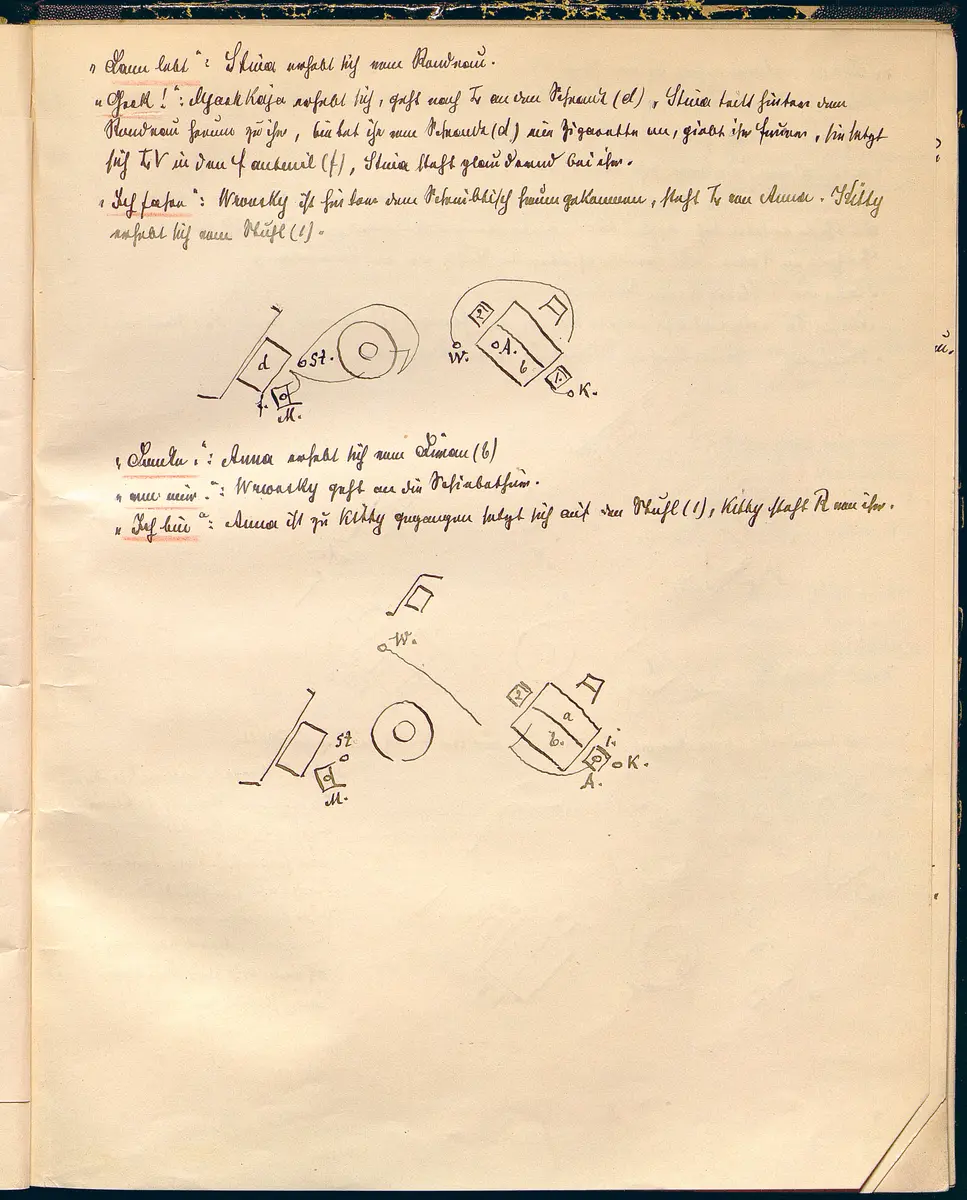 „Dann lebt“: Stiva erhebt sich vom Rondeau.
„Gook!“: Mjaskkaja erhebt sich, geht nach L an den Schrank (d), Stiva tritt hinter dem
Rondeau herum zu ihr, bietet ihr vom Schranke (d) eine Zigarette an, giebt ihr Feuer, sie setzt
sich LV in den Fauteuil (f), Stiva steht plaudernd bei ihr.
„Ich sehe“: Wronsky ist hinter dem Schreibtisch herumgekommen, steht L von Anna. Kitty
erhebt sich vom Stuhl (1).
d St. f. M.
W. 2 A. b 1. K.
„Danke.“: Anna erhebt sich vom Divan (b)
„von mir.“: Wronsky geht an die Schiebethür.
„Ich bin“: Anna ist zu Kitty gegangen setzt sich auf den Stuhl (1), Kitty steht R von ihr.
W.
St M.
2 a b. 1. K. A.